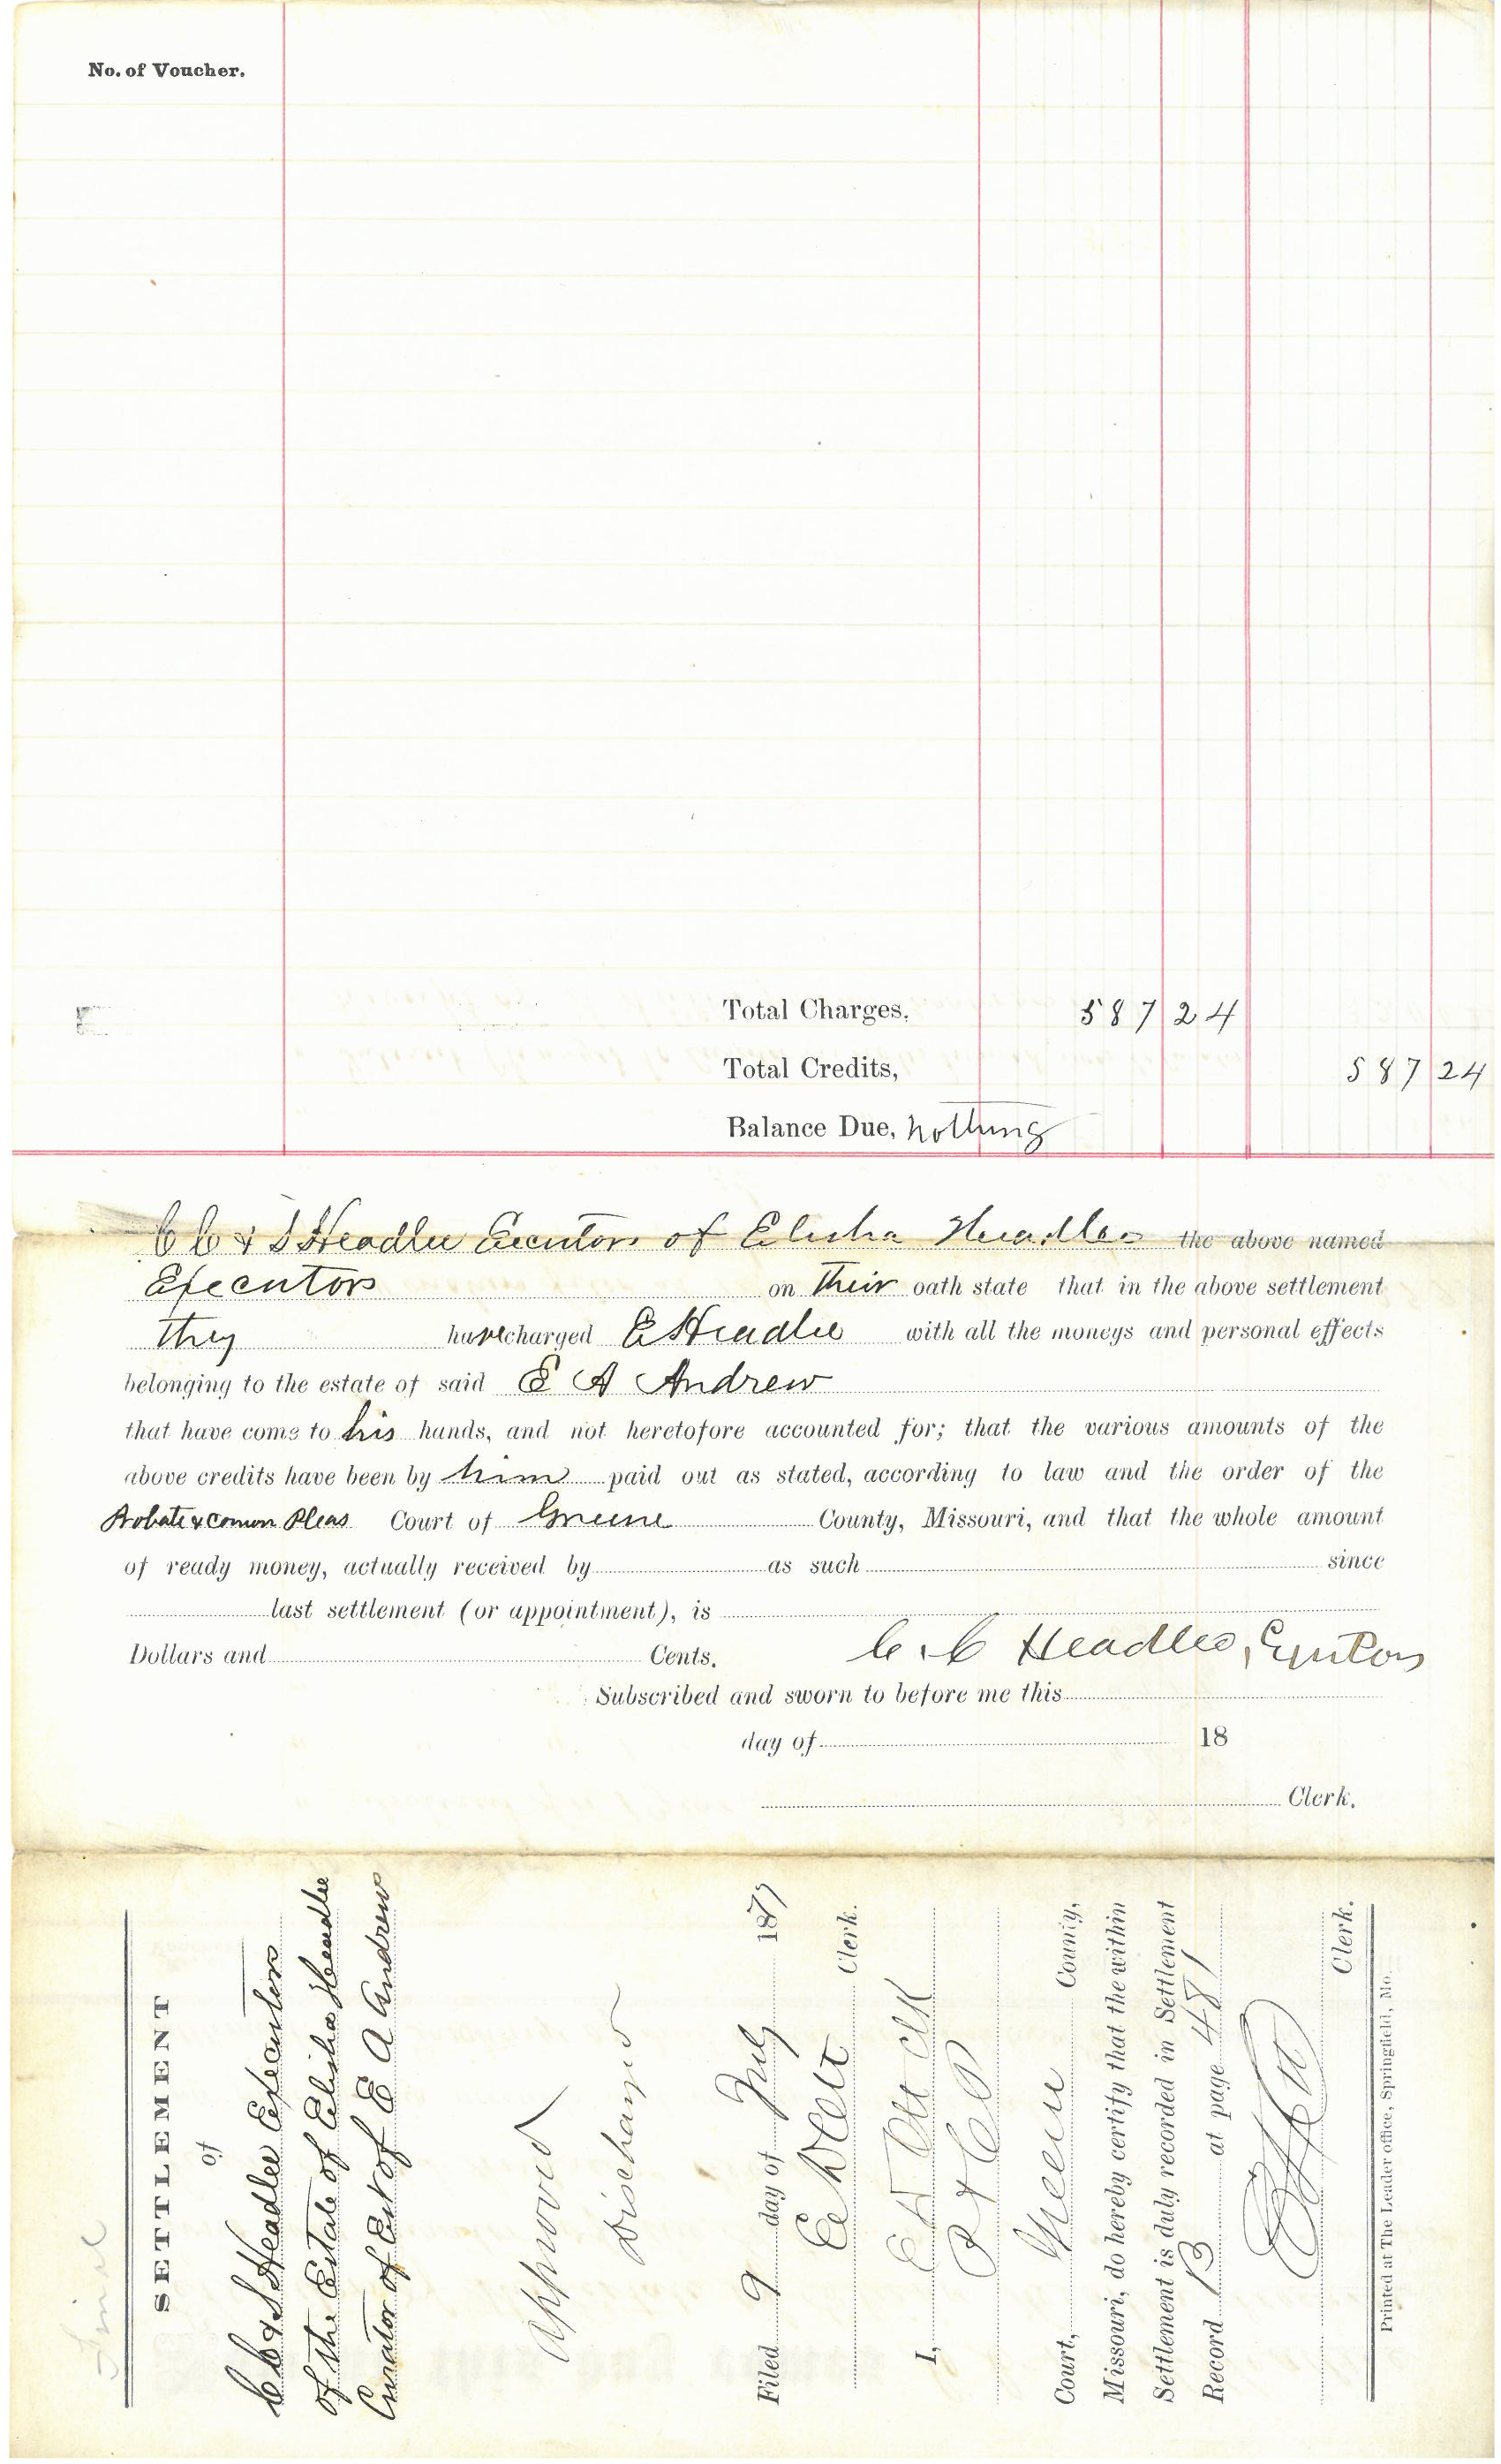 No. of Voucher.
Total Charges, 587 24
Total Credits, 587 24
Balance Due, nothing
C C & S Headlee Executors of Elisha Headlee the above named
Executors on their oath state that in the above settlement
they have charged E Headlee with all the moneys and personal effects
belonging to the estate of said E A Andrew
that have come to his hands, and not heretofore accounted for; that the various amounts of the
above credits have been by him paid out as stated, according to law and the order of the
Probate & Comon Pleas Court of Greene County, Missouri, and that the whole amount
of ready money, actually received by as such since
last settlement (or appointment), is
Dollars and Cents.
C. C Headlee,
Subscribed and sworn to before me this
day of 18
Clerk.
Final
SETTLEMENT
of
C C & S Headlee Executors
of the Estate of Elisha Headlee
Curator of Est of E A Andrew
Approved
Discharged
Filed 9 day of July 187
Clerk.
I, E D Ott Clk
P & C P
Court, Greene County,
Missouri, do hereby certify that the within
Settlement is duly recorded in Settlement
Record B at page 481
Clerk.
Printed at The Leader office, Springfield, Mo.